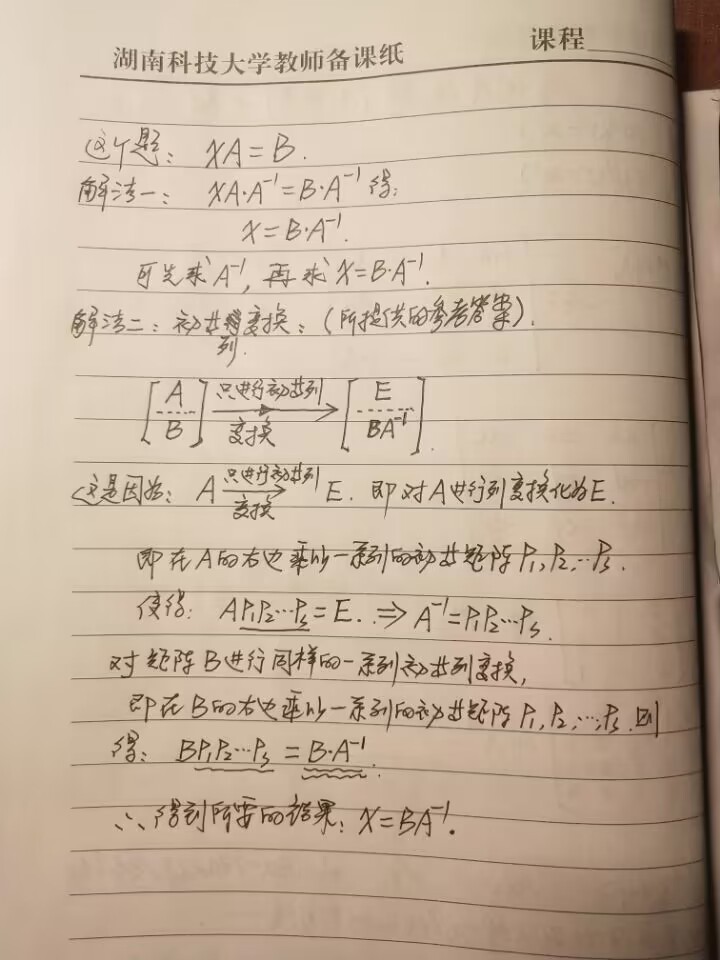 湖南科技大学教师备课纸 课程
这个题： XA=B.
解法一： XA·A⁻¹=B·A⁻¹ 得：
X=B·A⁻¹.
可先求A⁻¹, 再求X=B·A⁻¹.
解法二：初等变换：(所提供的参考答案).
列.
[A / B] 只进行初等列变换 → [E / BA⁻¹].
这是因为： A 只进行初等列变换 → E. 即对A进行列变换化为E.
即在A的右边乘以一系列的初等矩阵P₁,P₂,…Pₛ.
使得： AP₁P₂…Pₛ=E. ⇒ A⁻¹=P₁P₂…Pₛ.
对矩阵B进行同样的一系列初等列变换,
即在B的右边乘以一系列的初等矩阵P₁,P₂,…,Pₛ.则
得： BP₁P₂…Pₛ = B·A⁻¹.
∴得到所要的结果：X=BA⁻¹.